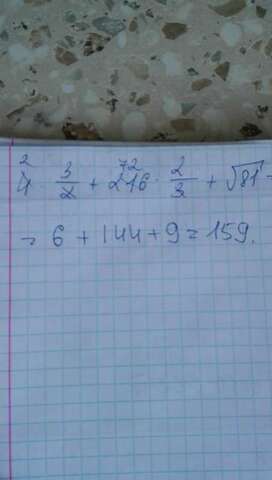 2 72
4 · 3/2 + 216 · 2/3 + √81 =
= 6 + 144 + 9 = 159.